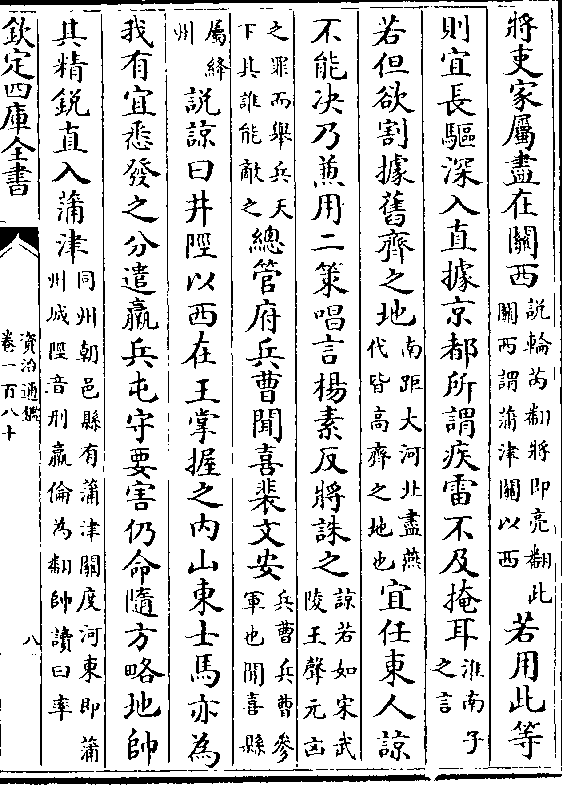 將吏家屬盡在關西說輪芮翻將即亮翻此關西謂蒲津關以西若用此等
則宜長驅深入直據京都所謂疾雷不及掩耳淮南子之言
若但欲割據舊齊之地南距大河北盡燕代皆高齊之地也宜任東人諒
不能決乃兼用二策唱言楊素反將誅之諒若如宋武陵王聲元凶
之罪而舉兵天下其誰能敵之總管府兵曹聞喜裴文安兵曹兵曹參軍也聞喜縣
屬絳州說諒曰井陘以西在王掌握之內山東士馬亦為
我有宜悉發之分遣羸兵屯守要害仍命隨方略地帥
其精銳直入蒲津同州朝邑縣有蒲津關度河東即蒲州城陘音刑羸倫為翻帥讀曰率
欽定四庫全書
資治通鑑
卷一百八十
八